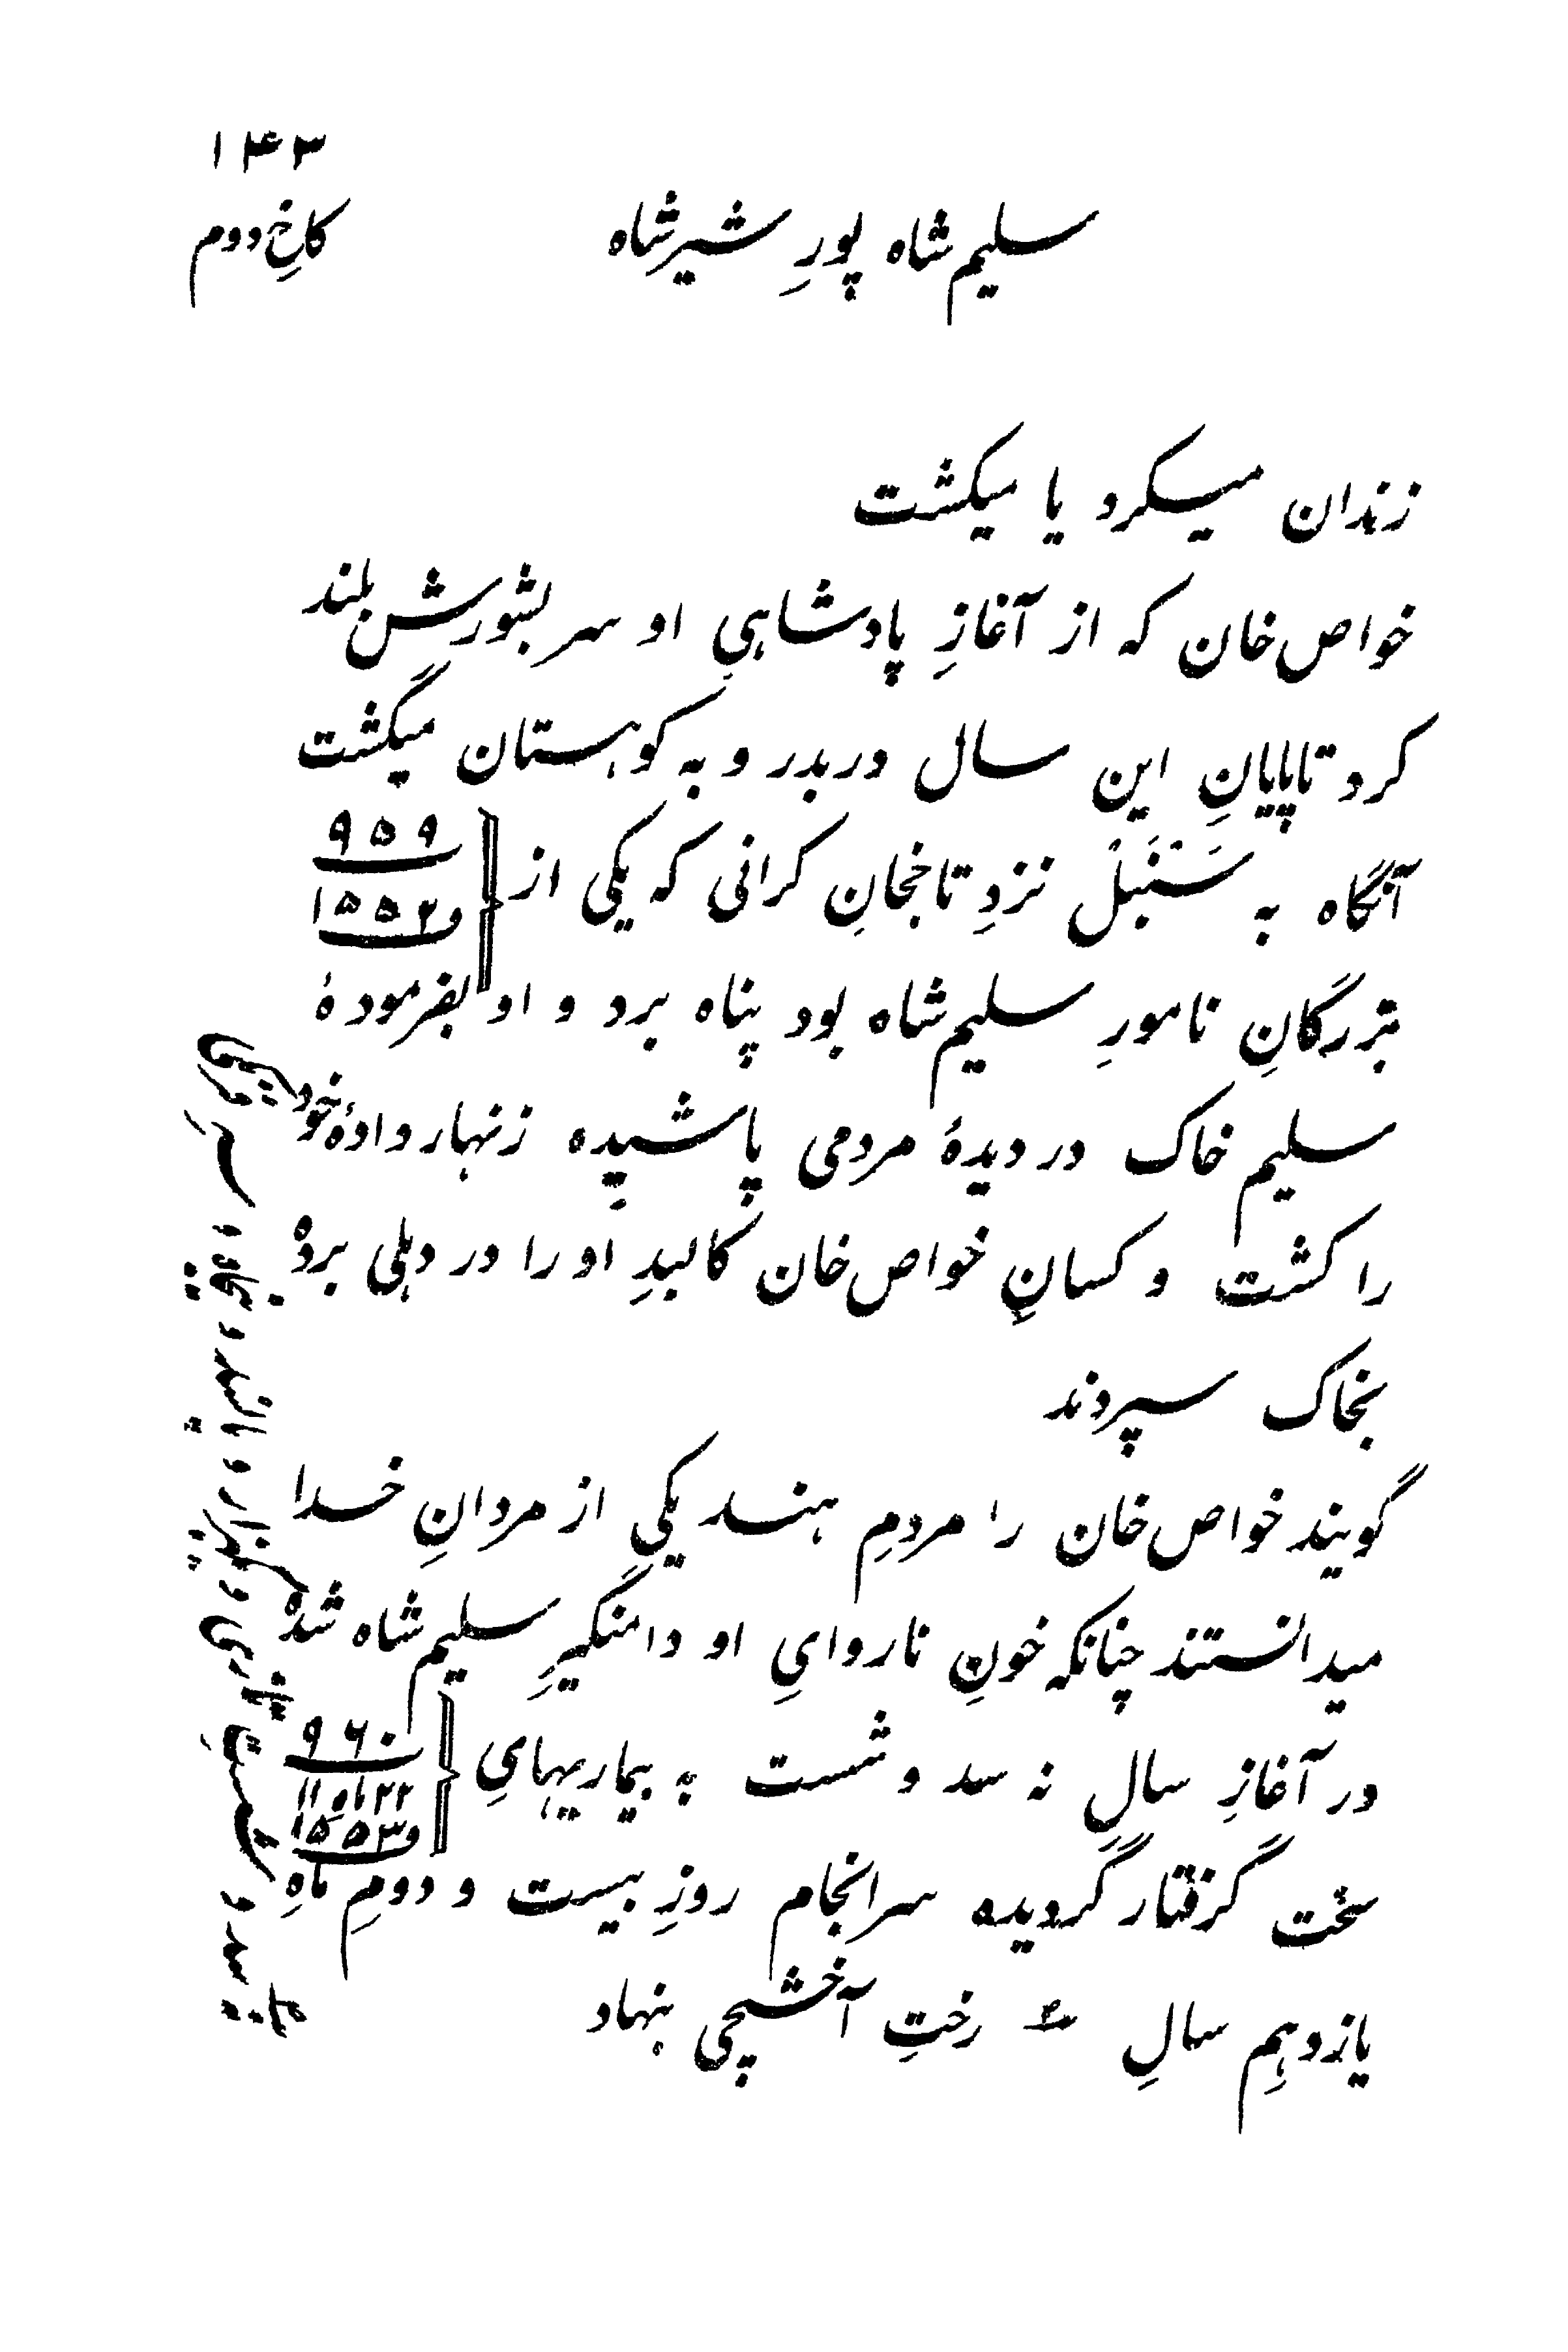 ۱۴۳
سلیم‌شاه پورِ شیرشاه
کاخِ دوم
زندان میکرد یا میکشت
خواص‌خان که از آغازِ پادشاهیِ او سر بشورش بلند
کرد تاپایانِ این سال دربدر و به کوهستان میگشت
آنگاه به سَنْبَلْ نزدِ تاجخانِ کرانی که یکی از
۹۵۹
و ۱۵۵۲
بزرگانِ نامورِ سلیم‌شاه بود پناه برد و او بفرمودهٔ
سلیم خاک در دیدهٔ مردمی پاشیده زنهار دادهٔ خود
را کشت و کسانِ خواص‌خان کالبدِ او را در دهلی برده
بخاک سپردند
گویند خواص‌خان را مردمِ هند یکی از مردانِ خدا
میدانستند چنانکه خونِ ناروایِ او دامنگیرِ سلیم‌شاه شده
در آغازِ سالِ نه سد و شست به بیماریهایِ
۹۶۰
۲۲ ماهِ ۱۱
و ۱۵۵۳
سخت گرفتار گردیده سرانجام روزِ بیست و دومِ ماهِ
یازدهمِ سالِ رختِ آخشیجی بنهاد